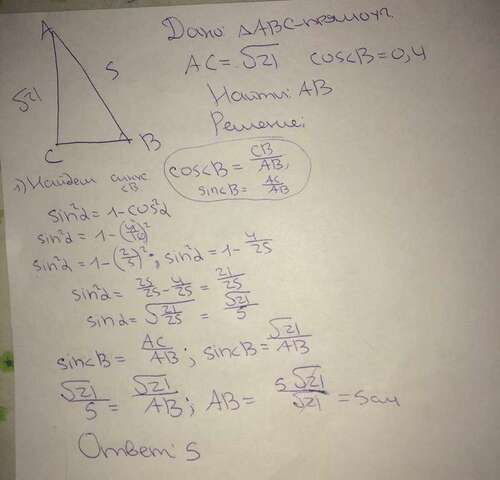 Дано: △ABC-прямоуг.
AC = √21 cos∠B = 0,4
Найти: AB
Решение:
A
5
√21
C
B
cos∠B = CB/AB,
sin∠B = AC/AB
1) Найдем синус ∠B
sin²α = 1 - cos²α
sin²α = 1 - (4/10)²
sin²α = 1 - (2/5)²; sin²α = 1 - 4/25
sin²α = 25/25 - 4/25 = 21/25
sinα = √21/25 = √21/5
sin∠B = AC/AB; sin∠B = √21/AB
√21/5 = √21/AB; AB = 5√21/√21 = 5см
Ответ: 5